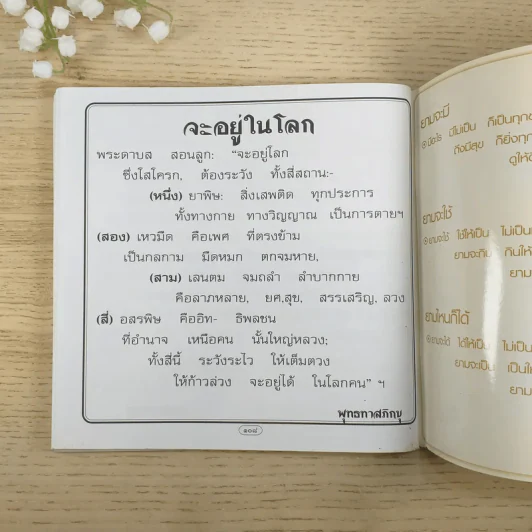 จะอยู่ในโลก
พระดาบส สอนลูก: "จะอยู่โลก
ซึ่งโสโครก, ต้องระวัง ทั้งสี่สถาน:-
(หนึ่ง) ยาพิษ: สิ่งเสพติด ทุกประการ
ทั้งทางกาย ทางวิญญาณ เป็นการตายฯ
(สอง) เหวมืด คือเพศ ที่ตรงข้าม
เป็นกลกาม มืดหมก ตกจมหาย,
(สาม) เลนตม จมถลำ ลำบากกาย
คือลาภหลาย, ยศ,สุข, สรรเสริญ, ลวง
(สี่) อสรพิษ คืออิท- ธิพลชน
ที่อำนาจ เหนือคน นั้นใหญ่หลวง;
ทั้งสี่นี้ ระวังระไว ให้เต็มตวง
ให้ก้าวล่วง จะอยู่ได้ ในโลกคน" ฯ
พุทธทาสภิกขุ
๑๐๘
ยามจะมี
มีไม่เป็น ก็เป็นทุกข
ถึงมีสุข ก็ยิ่งทุก
ดูให้
ยามจะใช้
ยามจะใช้ ใช้ให้เป็น ไม่เป็น
ยามจะกิน กินให้
ยาม
ยามไหนก็ได้
ได้ให้เป็น ไม่เป็
ยามจะเป็น เป็นให้
ยาม